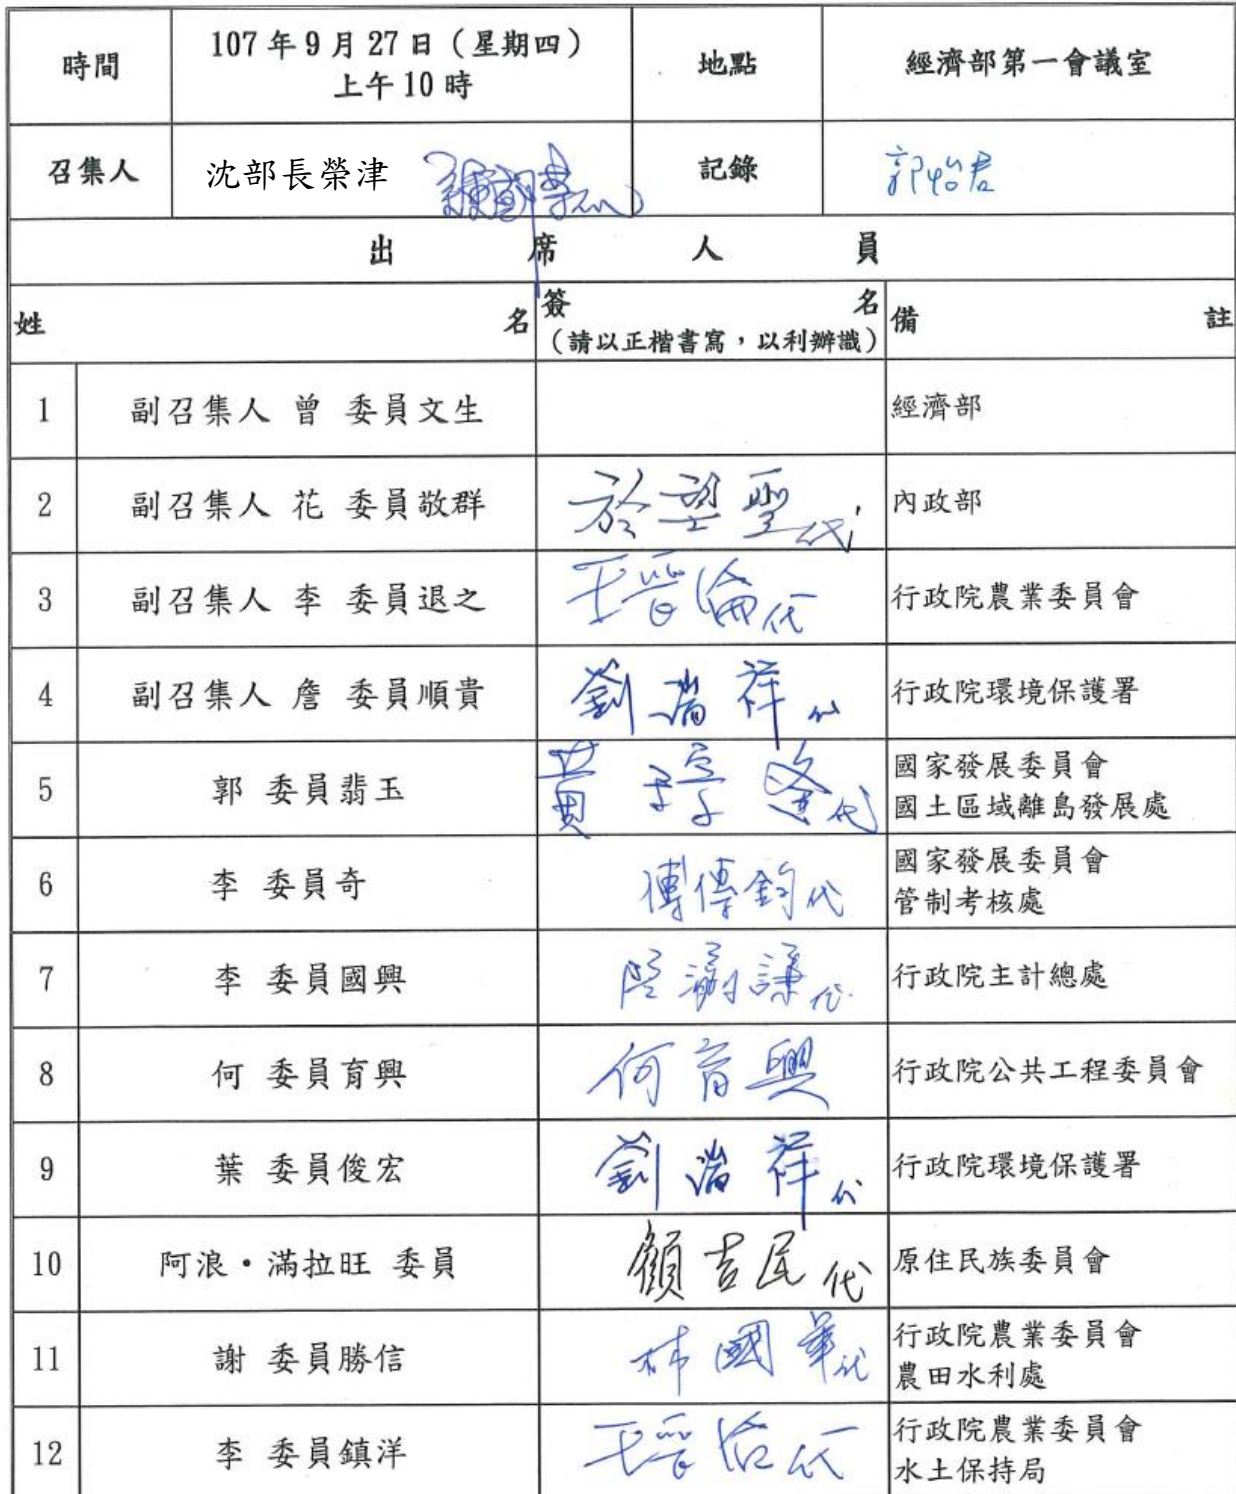 時間
107年9月27日（星期四）
上午10時
地點
經濟部第一會議室
召集人
沈部長榮津
記錄
郭怡君
出席人員
姓名
簽名
（請以正楷書寫，以利辦識）
備註
1 副召集人 曾 委員文生 經濟部
2 副召集人 花 委員敬群 於望聖代 內政部
3 副召集人 李 委員退之 王晉倫代 行政院農業委員會
4 副召集人 詹 委員順貴 劉瑞祥代 行政院環境保護署
5 郭 委員翡玉 黃 代 國家發展委員會
國土區域離島發展處
6 李 委員奇 傅傳鈞代 國家發展委員會
管制考核處
7 李 委員國興 謙代 行政院主計總處
8 何 委員育興 何育興 行政院公共工程委員會
9 葉 委員俊宏 劉瑞祥代 行政院環境保護署
10 阿浪・滿拉旺 委員 顧吉民代 原住民族委員會
11 謝 委員勝信 林國華代 行政院農業委員會
農田水利處
12 李 委員鎮洋 王晉倫代 行政院農業委員會
水土保持局